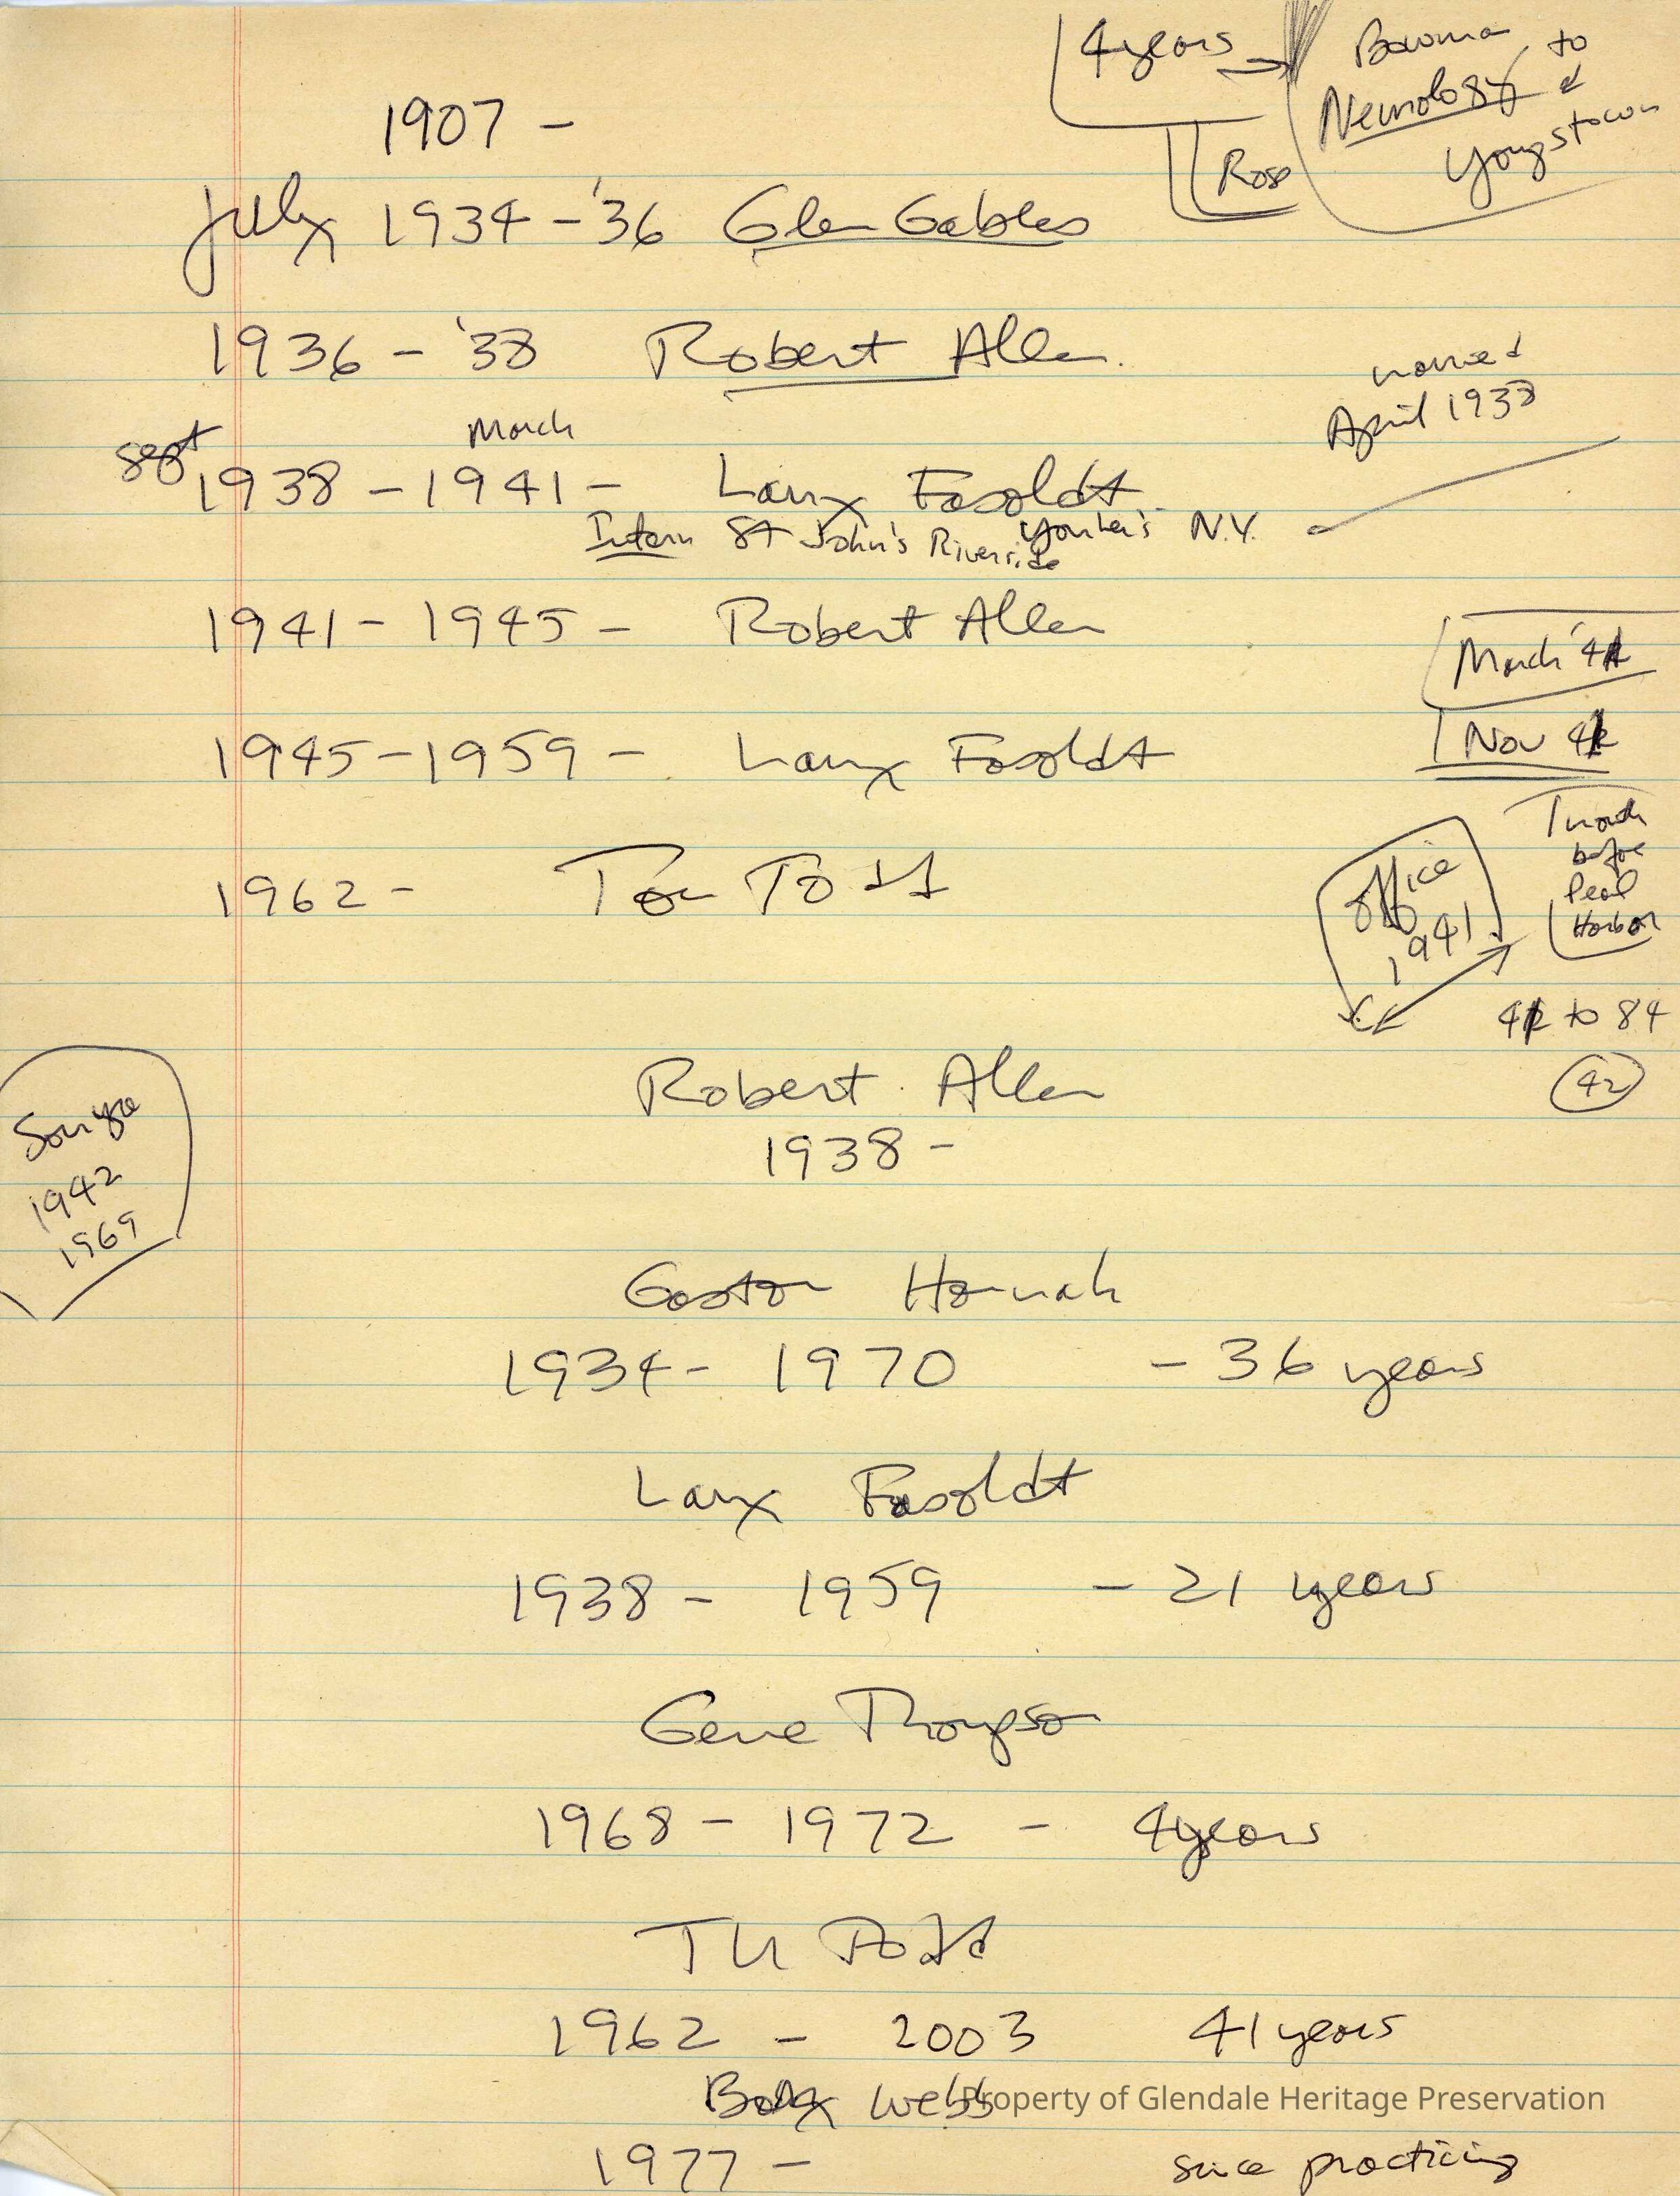 4 years → Bowman to
Neurology &
Yongstown
Rose
1907 -
July 1934 - '36 Glen Gables
1936 - '38 Robert Allen.
married
April 1938
Sept March
1938 - 1941 - Larry Fosoldt
Intern St John's Riverside Yonker's N.Y.
1941 - 1945 - Robert Allen
March '41
1945 - 1959 - Larry Fosoldt
Nov 41
1 month
before
Pearl
Harbor
office
1941
1962 -
41 to 84
42
Robert Allen
1938 -
1942
1969
Gaston Hannah
1934 - 1970 - 36 years
Larry Fasoldt
1938 - 1959 - 21 years
Gene Thompson
1968 - 1972 - 4 years
1962 - 2003 41 years
Webb
Property of Glendale Heritage Preservation
1977 - since practicing